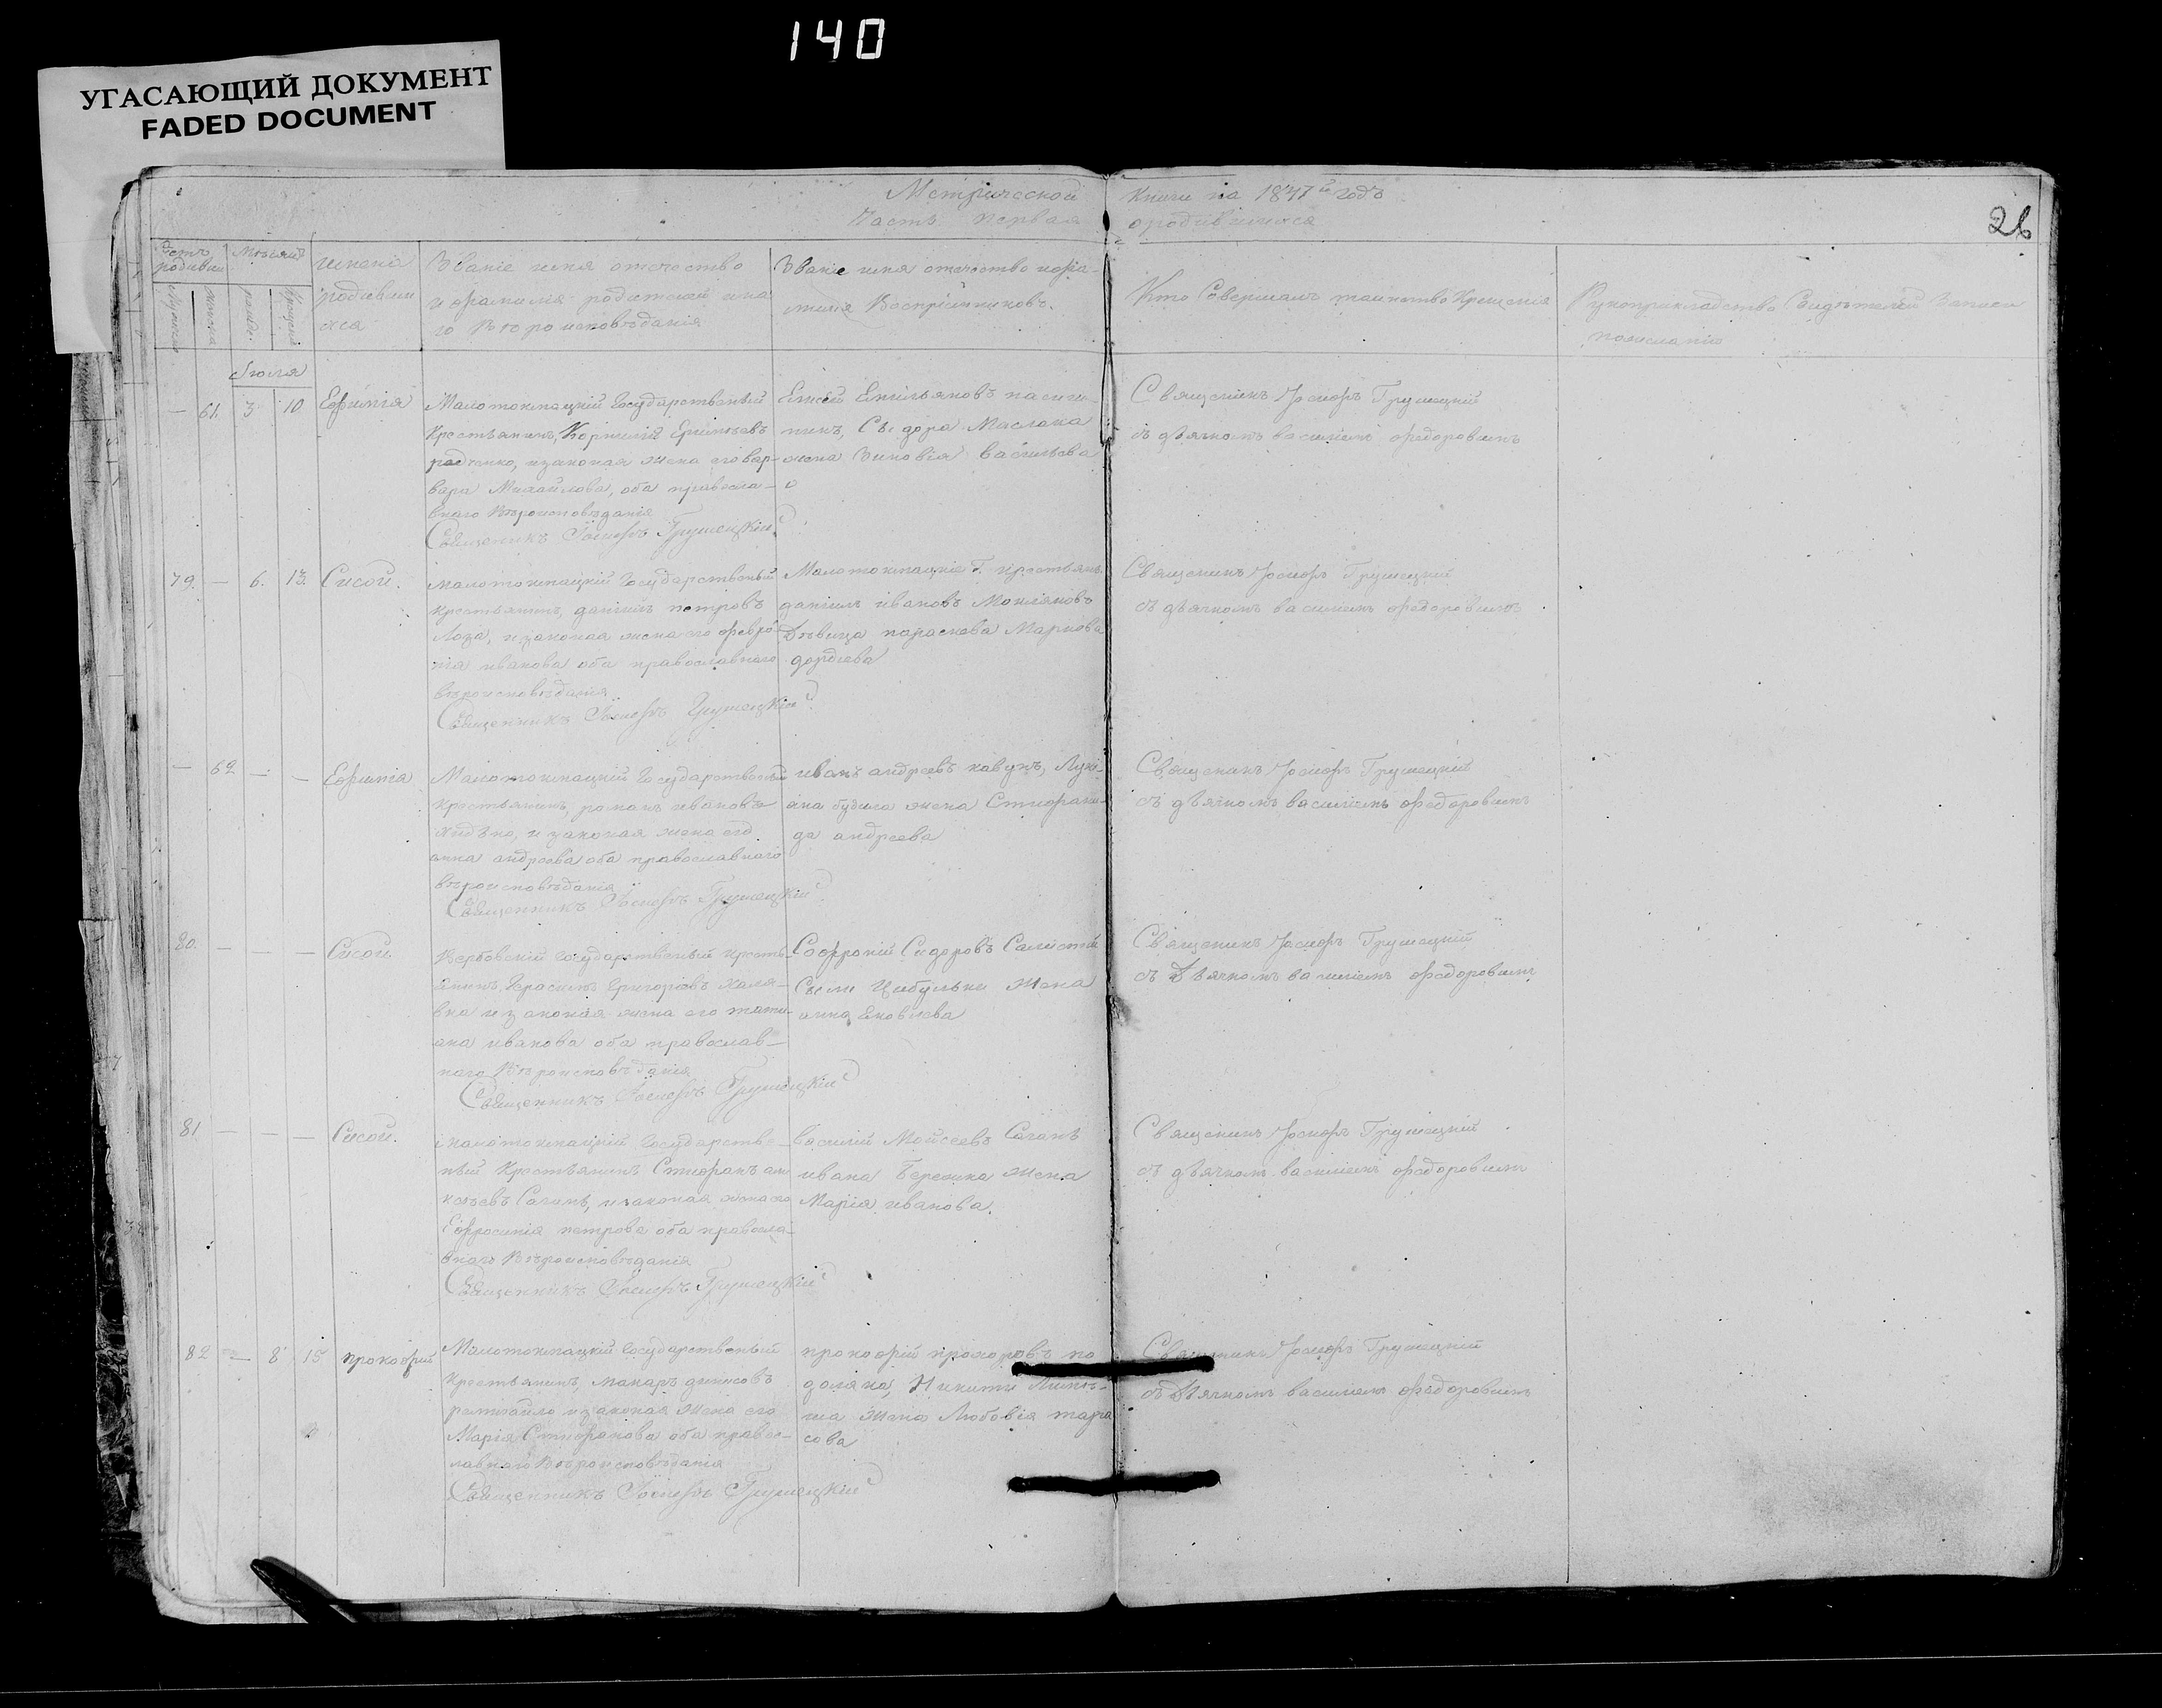 140
УГАСАЮЩИЙ ДОКУМЕНТ
FADED DOCUMENT
Метрической Книги на 1847й годъ
Часть первая о родившихся
26
Имена родившихся
Званіе имя отчество
и фамилія родителей и ка
го Вѣроисповѣданія
Званіе имя отчество и фа-
милія Воспріѣмниковъ.
Кто Совершалъ таинство Крещенія
Рукоприкладство Свидѣтелей Записи
по желанію
Іюля
— 61. 3 10 Ефимія
Малотокмацкій Государственый
Крестьянинъ,
радченко, и законая жена его Вар-
вара Михайлова, оба правосла-
внаго Вѣроисповѣданія
Священникъ Іосифъ Грушецкій
Емельяновъ
Сидора Маслака
жена Зиновія Васильева
Священикъ Іосифъ Грушецкій
съ дѣячкомъ василіемъ федоровымъ
79. — 6. 13. Сисой.
Малотокмацкій Государственый
крестьянинъ, даніилъ петровъ
Лоза, и законая жена его февро
нія иванова оба православнаго
вѣроисповѣданія
Священникъ Іосифъ Грушецкій
Малотокмацкіе Г. крестьяне
даніилъ ивановъ
Дѣвица параскева Маркова
гордіева
Священикъ Іосифъ Грушецкій
съ дѣячкомъ василіемъ федоровымъ
— 62 — — Ефимія
Малотокмацкій Государственый
крестьянинъ, романъ ивановъ
и законая жена его
анна андреева оба православнаго
вѣроисповѣданія
Священникъ Іосифъ Грушецкій
иванъ андреевъ кавунъ, Луки-
яна жена Стифани-
да андреева
Священикъ Іосифъ Грушецкій
съ дѣячкомъ василіемъ федоровымъ
80. — — — Сисой
Вербовскій государственый кресть-
янинъ, Герасимъ Григоріевъ Халя-
вка и законая жена его тати-
ана иванова оба православ-
наго Вѣроисповѣданія
Священникъ Іосифъ Грушецкій
Софроній Сидоровъ
Цибульки жена
анна Яковлева
Священикъ Іосифъ Грушецкій
съ Дѣячкомъ василіемъ федоровымъ
81 — — — Сисой.
Малотокмацкій Государстве-
ный Крестьянинъ Стифанъ але
ксѣевъ Саганъ, и законая жена его
Ефросинія петрова оба правосла-
внаго Вѣроисповѣданія
Священникъ Іосифъ Грушецкій
Василій Мойсеевъ Саганъ
ивана Бережка жена
Марія иванова.
Священикъ Іосифъ Грушецкій
съ дѣячкомъ василіемъ федоровымъ
82 — 8 15 прокофій
Малотокмацкій Государственый
крестьянинъ, макаръ денисовъ
и законая жена его
Марія Стифанова оба правос-
лавнаго Вѣроисповѣданія
Священникъ Іосифъ Грушецкій
прокофій прохоровъ по
доляка, Никиты
жена Любовія тара
сова
Священикъ Іосифъ Грушецкій
съ Дѣячкомъ василіемъ федоровымъ